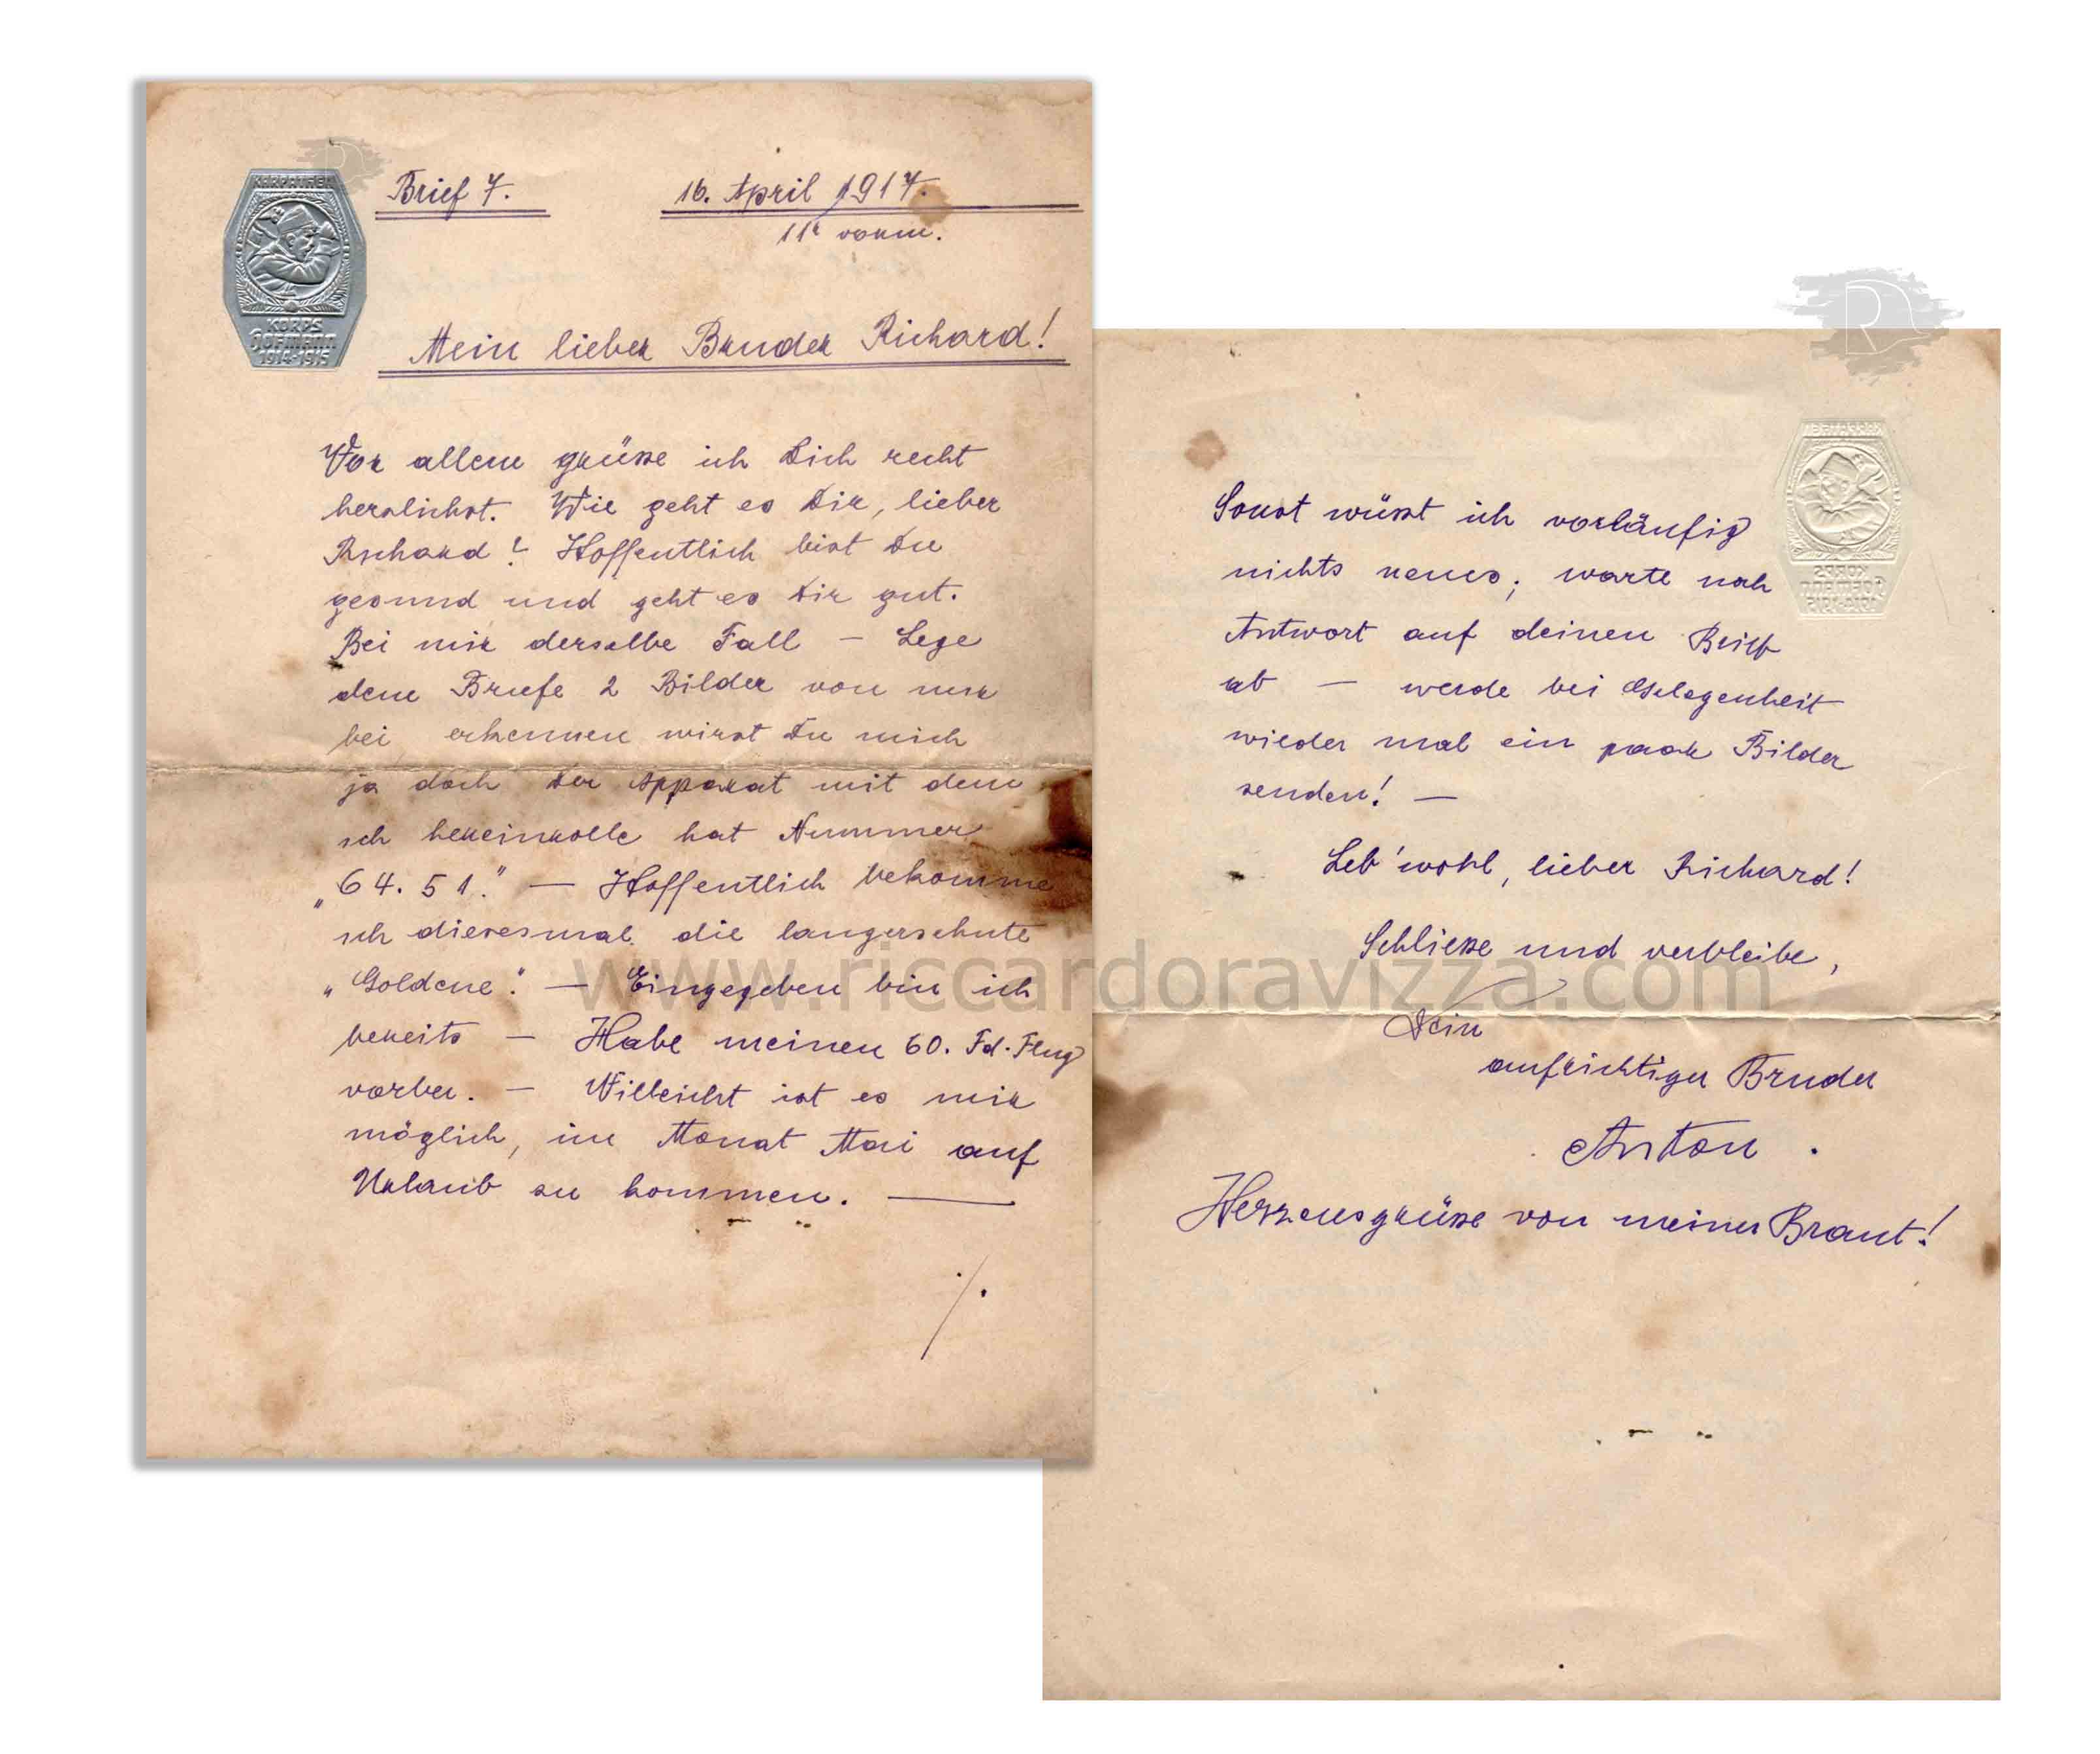 KARPATHEN
KORPS
HOFMANN
1914-1915
Brief 7.
16. April 1917.
11h vorm.
Mein lieber Bruder Richard!
Vor allem grüsse ich Dich recht
herzlichst. Wie geht es Dir, lieber
Richard? Hoffentlich bist Du
gesund und geht es Dir gut.
Bei mir derselbe Fall – Lege
dem Briefe 2 Bilder von mir
bei erkennen wirst Du mich
ja doch Der Apparat mit dem
ich hereinrolle hat Nummer
„64.51." — Hoffentlich bekomme
ich diesesmal die langersehnte
„Goldene". — Eingegeben bin ich
bereits — Habe meinen 60. Fd. Flug
vorbei. — Villeicht ist es mir
möglich, im Monat Mai auf
Urlaub zu kommen. —
./.
Sonst wüsst ich vorläufig
nichts neues; warte noch
Antwort auf deinen Brief
ab — werde bei Gelegenheit
wieder mal ein paar Bilder
senden! —
Leb'wohl, lieber Richard!
Schliesse und verbleibe,
Dein
aufrichtiger Bruder
Anton.
Herzensgrüsse von meiner Braut!
www.riccardoravizza.com